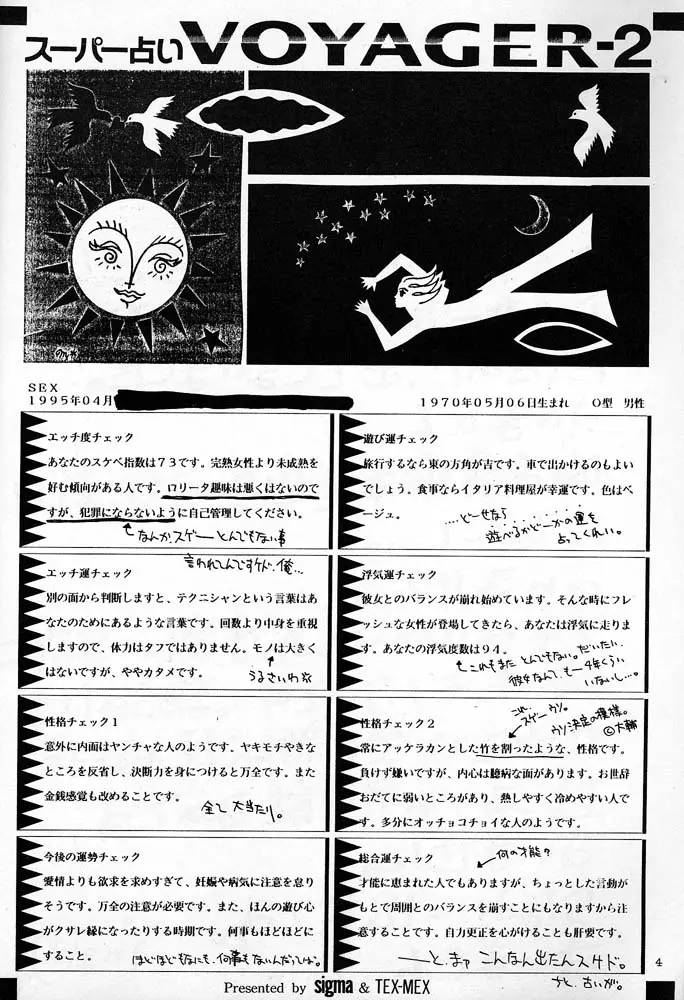 スーパー占い VOYAGER-2
SEX
1995年04月
1970年05月06日生まれ O型 男性
エッチ度チェック
あなたのスケベ指数は73です。完熟女性より未成熟を
好む傾向がある人です。ロリータ趣味は悪くはないので
すが、犯罪にならないように自己管理してください。
なんかスゲーとんでもない事
言われてんですケド、俺…
遊び運チェック
旅行するなら東の方角が吉です。車で出かけるのもよい
でしょう。食事ならイタリア料理屋が幸運です。色はベ
ージュ。
…どーせなら
遊べるかどーかの運を
占ってくれい。
エッチ運チェック
別の面から判断しますと、テクニシャンという言葉はあ
なたのためにあるような言葉です。回数より中身を重視
しますので、体力はタフではありません。モノは大きく
はないですが、ややカタメです。
うるさいわ
浮気運チェック
彼女とのバランスが崩れ始めています。そんな時にフレ
ッシュな女性が登場してきたら、あなたは浮気に走りま
す。あなたの浮気度数は94。
これもまた とんでもない。だいたい
彼女なんて、もー4年くらい
いないし…。
性格チェック1
意外に内面はヤンチャな人のようです。ヤキモチやきな
ところを反省し、決断力を身につけると万全です。また
金銭感覚も改めることです。
全て大当たり。
これ、
スゲーウソ。
ウソ決定の模様。
©大輔
性格チェック2
常にアッケラカンとした竹を割ったような、性格です。
負けず嫌いですが、内心は臆病な面があります。お世辞
おだてに弱いところがあり、熱しやすく冷めやすい人で
す。多分にオッチョコチョイな人のようです。
今後の運勢チェック
愛情よりも欲求を求めすぎて、妊娠や病気に注意を怠り
そうです。万全の注意が必要です。また、ほんの遊び心
がクサレ縁になったりする時期です。何事もほどほどに
すること。
ほどほどもなにも、何事もないんだってば。
総合運チェック
何の才能?
才能に恵まれた人でもありますが、ちょっとした言動が
もとで周囲とのバランスを崩すことにもなりますから注
意することです。自力更正を心がけることも肝要です。
――と、まァ こんなん出たんスケド。
4
Presented by sigma & TEX-MEX